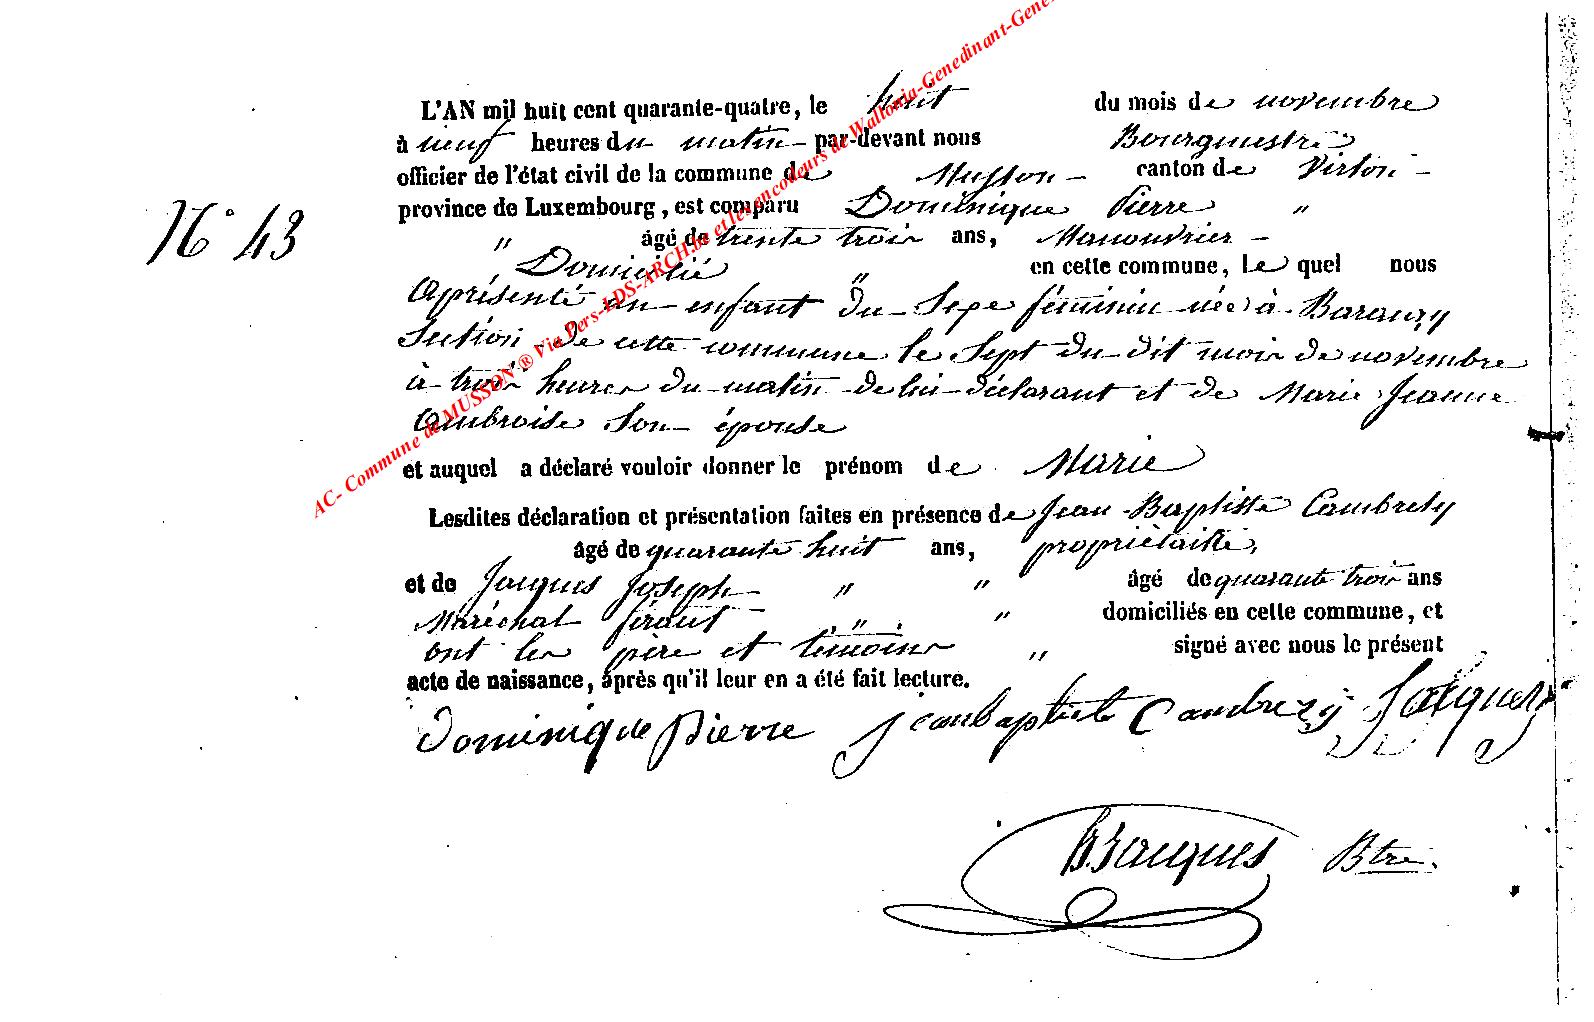 L'AN mil huit cent quarante-quatre, le huit du mois de novembre
à neuf heures du matin par-devant nous Bourgmestre
officier de l'état civil de la commune de Musson canton de Virton
province de Luxembourg, est comparu Dominique Pierre "
N° 43
" âgé de trente trois ans, Manouvrier
, Domicilié " en cette commune, le quel nous
a présenté un enfant du Sexe féminin née à Baranzy
Section de cette commune le Sept du dit mois de novembre
à trois heures du matin de lui déclarant et de Marie Jeanne
Ambroise Son épouse
et auquel a déclaré vouloir donner le prénom de Marie
Lesdites déclaration et présentation faites en présence de Jean Baptiste Cambresy
âgé de quarante huit ans, propriètaire,
et de Jacques Joseph " " âgé de quarante trois ans
Maréchal ferant " " domiciliés en cette commune, et
ont les père et témoins " signé avec nous le présent
acte de naissance, après qu'il leur en a été fait lecture.
Dominique Pierre jean baptiste Cambrezy Jacques
Jacques Btre.
AC- Commune de MUSSON ® Via Pers-LDS-ARCH.be et les encodeurs de Wallonia-Genedinant-Gene